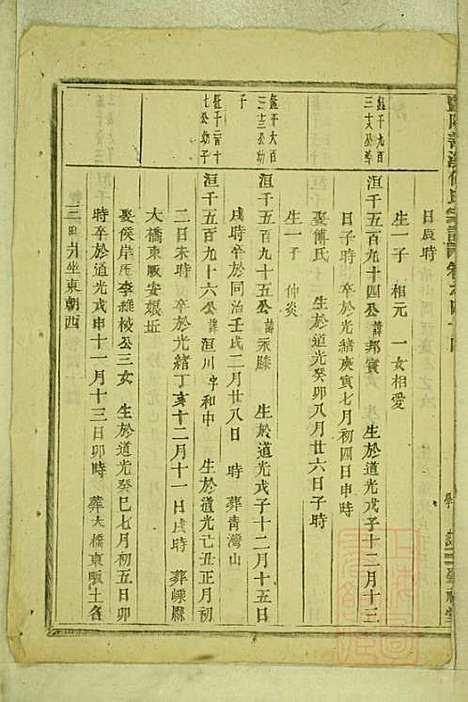 日辰時
生一子 相元 一女相愛
洹千五百九十四公諱邦寶 生於道光戊子十二月十三
日子時 卒於光緒庚寅七月初四日申時
娶傅氏 生於道光癸卯八月廿六日子時
生一子 仲炎
洹千五百九十五公諱永 生於道光戊子十二月十五日
戌時卒於同治壬戌二月廿八日 時 葬青灣山
子
七公幼子
洹千五百九十六公諱洹川字和中 生於道光己丑正月初
二日未時 卒於光緒丁亥十二月十一日戌時 葬嵊縣
大橋東畈安娘坵
娶侯岸馬李維棱公三女 生於道光癸巳七月初五日卯
時卒於道光戊申十一月十三日卯時 葬大橋東畈土名
三 坵坐東朝西